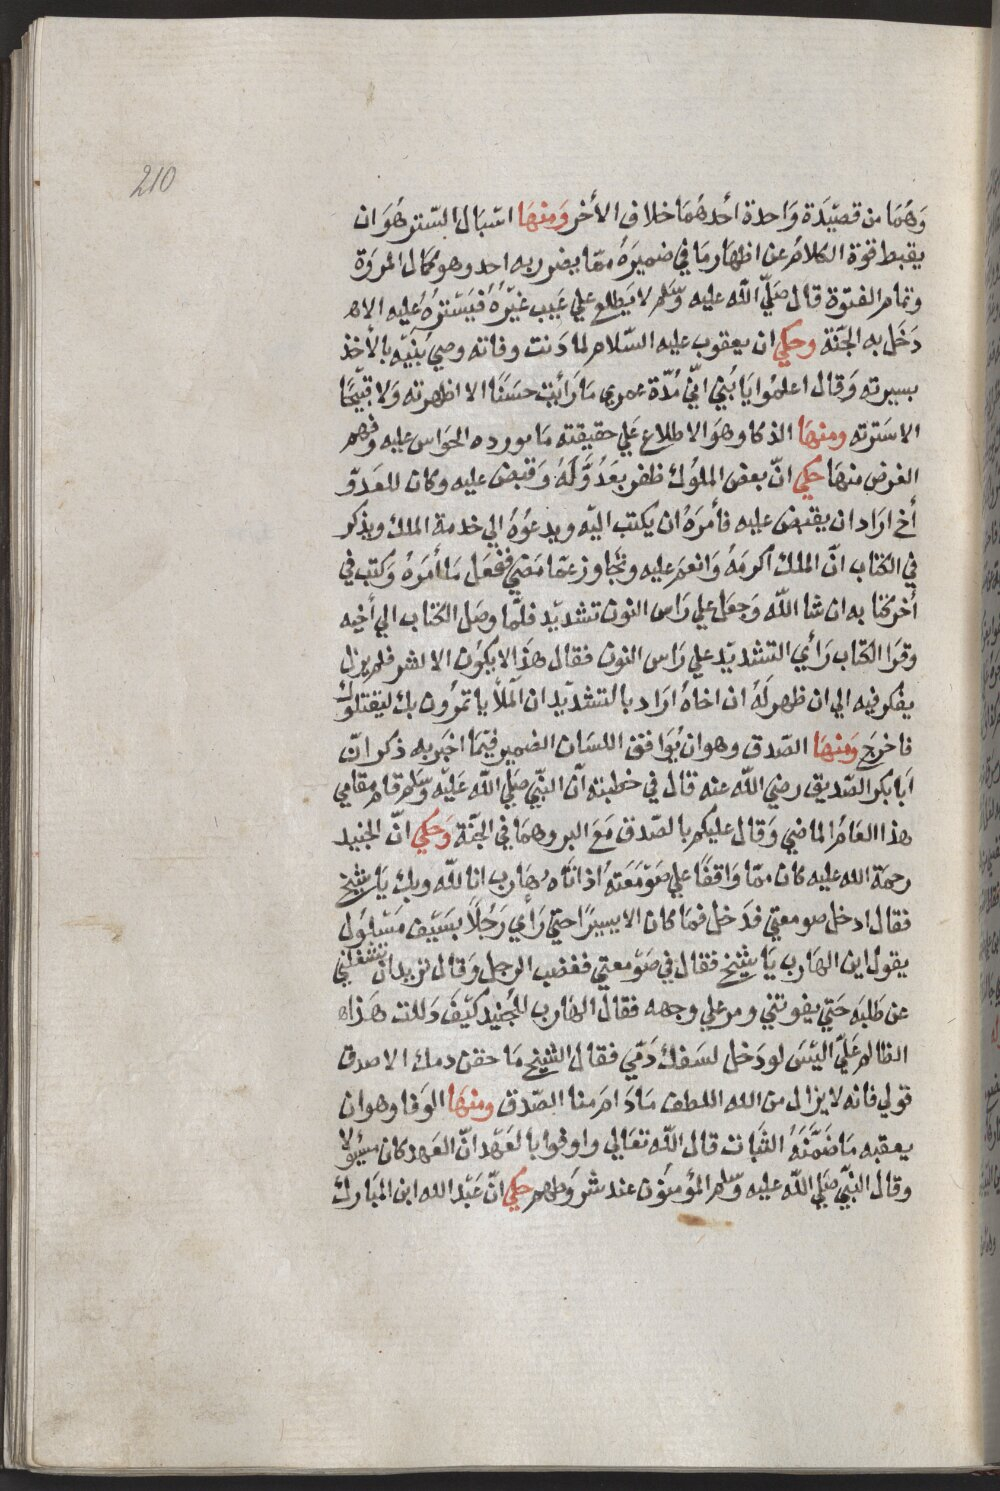 210
وَهُمَا من قصيّدَة وَاحدة أحدهُمَا خلاف الأخر وَمنهَا اسْبَال السّتر هُوَ ان
يقبط قوة الكلامُ عن اظهار مَا في ضميرَهُ ممّا يضر به احد وهو كمال المروَة
وتمام الفتوّة قال صَلّي اللّه عليه وسّلم لا يَطلع علي عَيب غيْرَهُ فيَسْترُهُ عليه الاه
دَخَل به الجَنّة وحكي ان يعقوب عليه السّلام لما دَنت وفاته وصي بَنيّه بالأخذ
بسيرته وَقال اعلمُوا يَا بُني انّي مُدّة عمري مَا رَأئت حسَنًا الا اظهرته وَلا قبيّحًا
الا سَترته ومنهَا الذكا وهوَ الاطلاع عَلي حقيقته مَا يورده الحوَاس عليه وفهم
الغرض منهَا حكي انّ بعض الملوُك ظفر بعَدُوّ لَهُ وَقبض عليه وكان للعَدوّ
أخ ارَاد ان يقبَض عليه فأمرَهُ ان يكتب اليّه ويدعُوُهُ الي خدمة الملك ويذكر
في الكتاب انّ الملك اكرمَهُ وَانعَم عليه وتجَاوز عمّا مَضي ففعَل مَا أمَرَهُ وَكتب في
أخر كتابه ان شا اللّه وَجعَل علي رَاس النون تشديّد فلمّا وصَل الكتاب الي أخيه
وقرَا الكتاب رَأي التشديّد علي رَاس النون فقال هذَا لا يكوُن الا لشر فلم يزل
يفكر فيه الي ان ظهر لَهُ ان اخاهُ ارَاد بالتشديّد ان الملأ ياتمرُون بك ليقتلوك
فاخرج وَمنهَا الصّدق وهو ان يُوَافق اللسَان الضمير فيّمَا اخبَر به ذكر انّ
ابَا بكر الصّديق رضي اللّه عنه قال في خطبته أنّ النبّي صَلي اللّه عَليّه وسّلم قام مقامي
هذا العَامُ الماضي وَقال عليكم بالصّدق مَعَ البر وهمَا في الجَنّة وَحكي انّ الجنيد
رحمَة الله عليه كان ممّا وَاقفًا علي صَوْمَعَتهُ اذ اتَاهُ هَارب انا للّه وبك يَا شيخ
فقال ادخل صومعتي فدَخل فمَا كان الا يسيرًا حتي رَأي رَجُلاً بسَيْف مَسْلوُل
يقول اين الهَارب يَا شيْخ فقال في صَوْمعتي فغضب الرجل وَقال تريد ان تشغلني
عن طَلبَه حَتي يفوتني ومر علي وجهه فقال الهَارب للجُنيد كيّفَ دَللت هَذاه
الظالم عَليَّ اليْسَ لو دَخل لسَفك دَمّي فقال الشيْخ مَا حقن دمك الا صدق
قولي فانه لا يزال من الله اللطف مَا دَام منا الصّدق ومنهَا الوَفا وهو ان
يعقبه مَا ضمَّنَهُ الثبَات قال اللّه تعَالي واوفوا بالعَهْد انّ العَهد كان مسئولا
وقال النبّي صَلي اللّه عليه وسّلم المؤمنوُن عند شروَطهم حكي انّ عَبْد الله ابن المبَارك